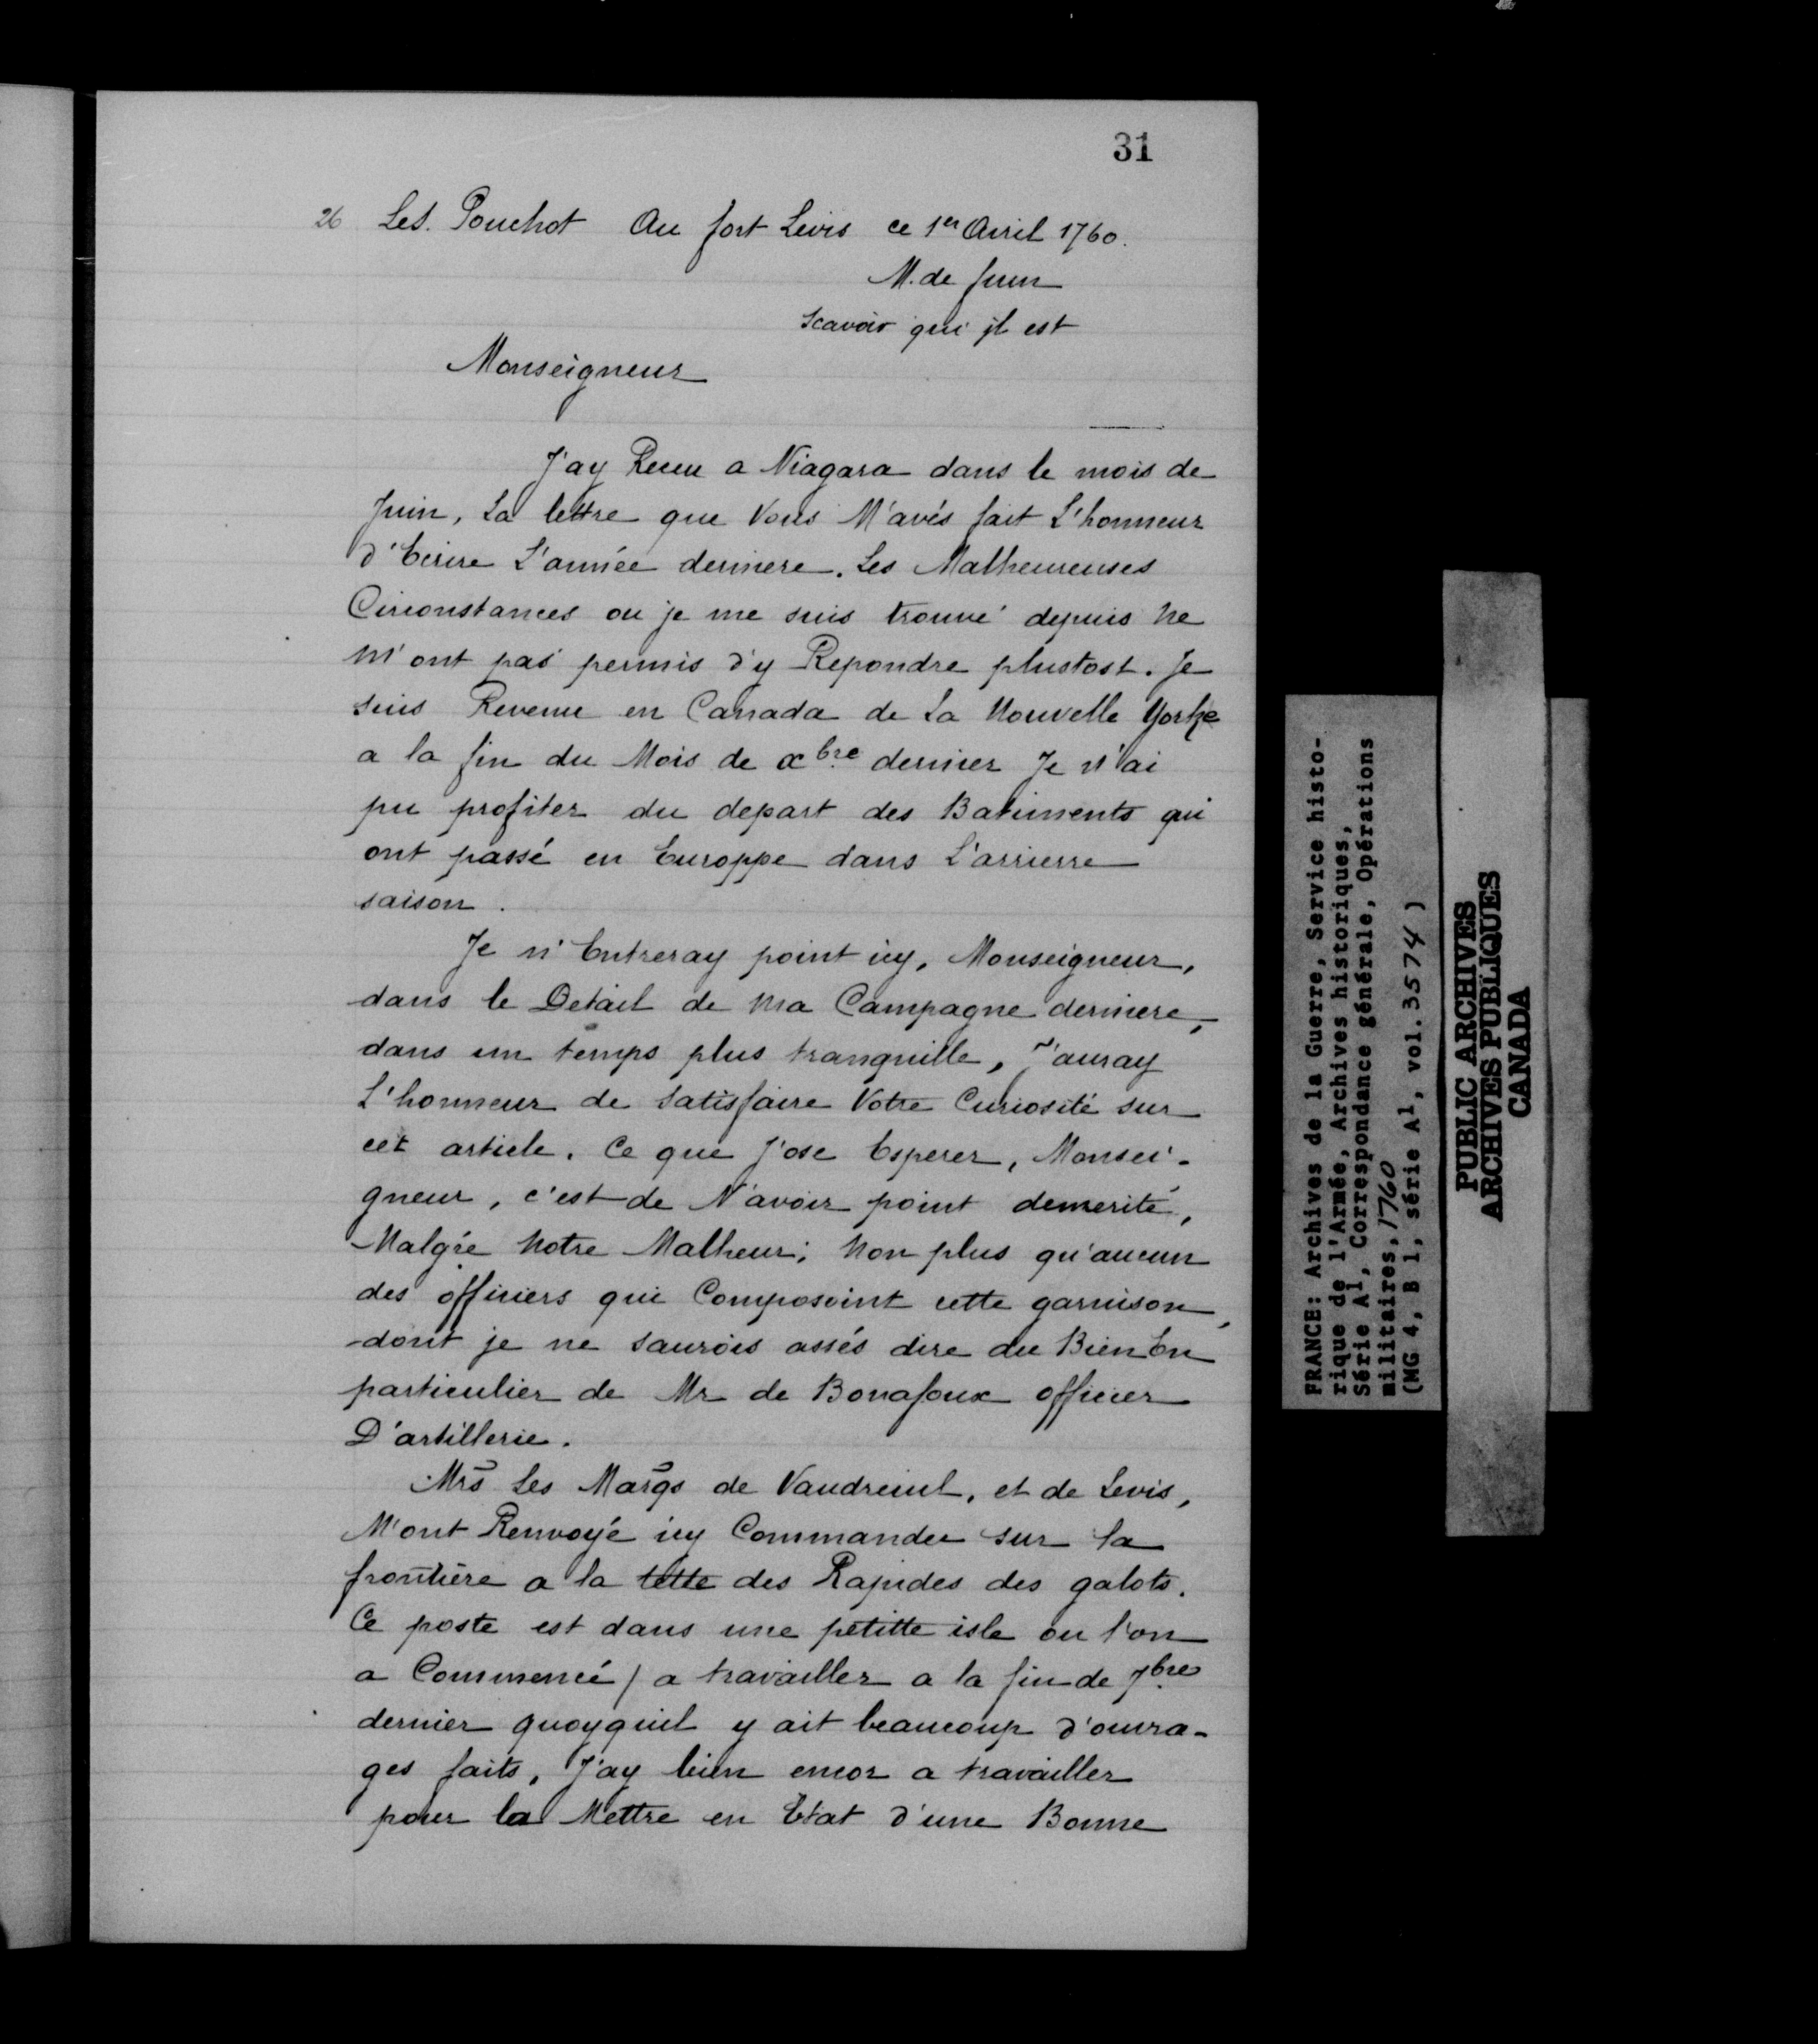 31
26 Le S. Pouchot Au fort Levis ce 1er Avril 1760.
M. de Juin
Scavoir qui jl est
Monseigneur
J'ay Receu a Niagara dans le mois de
Juin, La lettre que Vous M'avés fait L'honneur
d'Ecrire L'année derniere. Les Malheureuses
Circonstances ou je me suis trouvé depuis ne
M'ont pas permis d'y Repondre plustost. Je
suis Revenu en Canada de La Nouvelle Yorke
a la fin du Mois de xbre dernier Je n'ai
pu profiter du depart des Batiments qui
ont passé en Europpe dans L'arrierre
saison.
Je n'Entreray point icy, Monseigneur,
dans le Detail de Ma Campagne derniere,
dans un temps plus tranquille, J'auray
L'honneur de Satisfaire Votre Curiosité sur
cet article. Ce que J'ose Esperer, Monsei-
gneur, c'est de N'avoir point demerité,
Malgré Notre Malheur; Non plus qu'aucun
des officiers qui Composoint cette garnison,
dont je ne saurois assés dire du Bien En
particulier de Mr de Bonafoux officier
D'artillerie.
Mrs Les Marqs de Vaudreuil, et de Levis,
M'ont Renvoyé icy Commander sur la
frontière a la tette des Rapides des galots.
Ce poste est dans une petitte isle ou l'on
a Commencé / a travailler a la fin de 7bre
dernier quoyquil y ait beaucoup d'ouvra-
ges faits, J'ay bien encor a travailler
pour la Mettre en Etat d'une Bonne
FRANCE: Archives de la Guerre, Service histo-
rique de l'Armée, Archives historiques,
Série A1, Correspondance générale, Opérations
militaires, 1760
(MG 4, B 1, série A1, vol. 3574)
PUBLIC ARCHIVES
ARCHIVES PUBLIQUES
CANADA